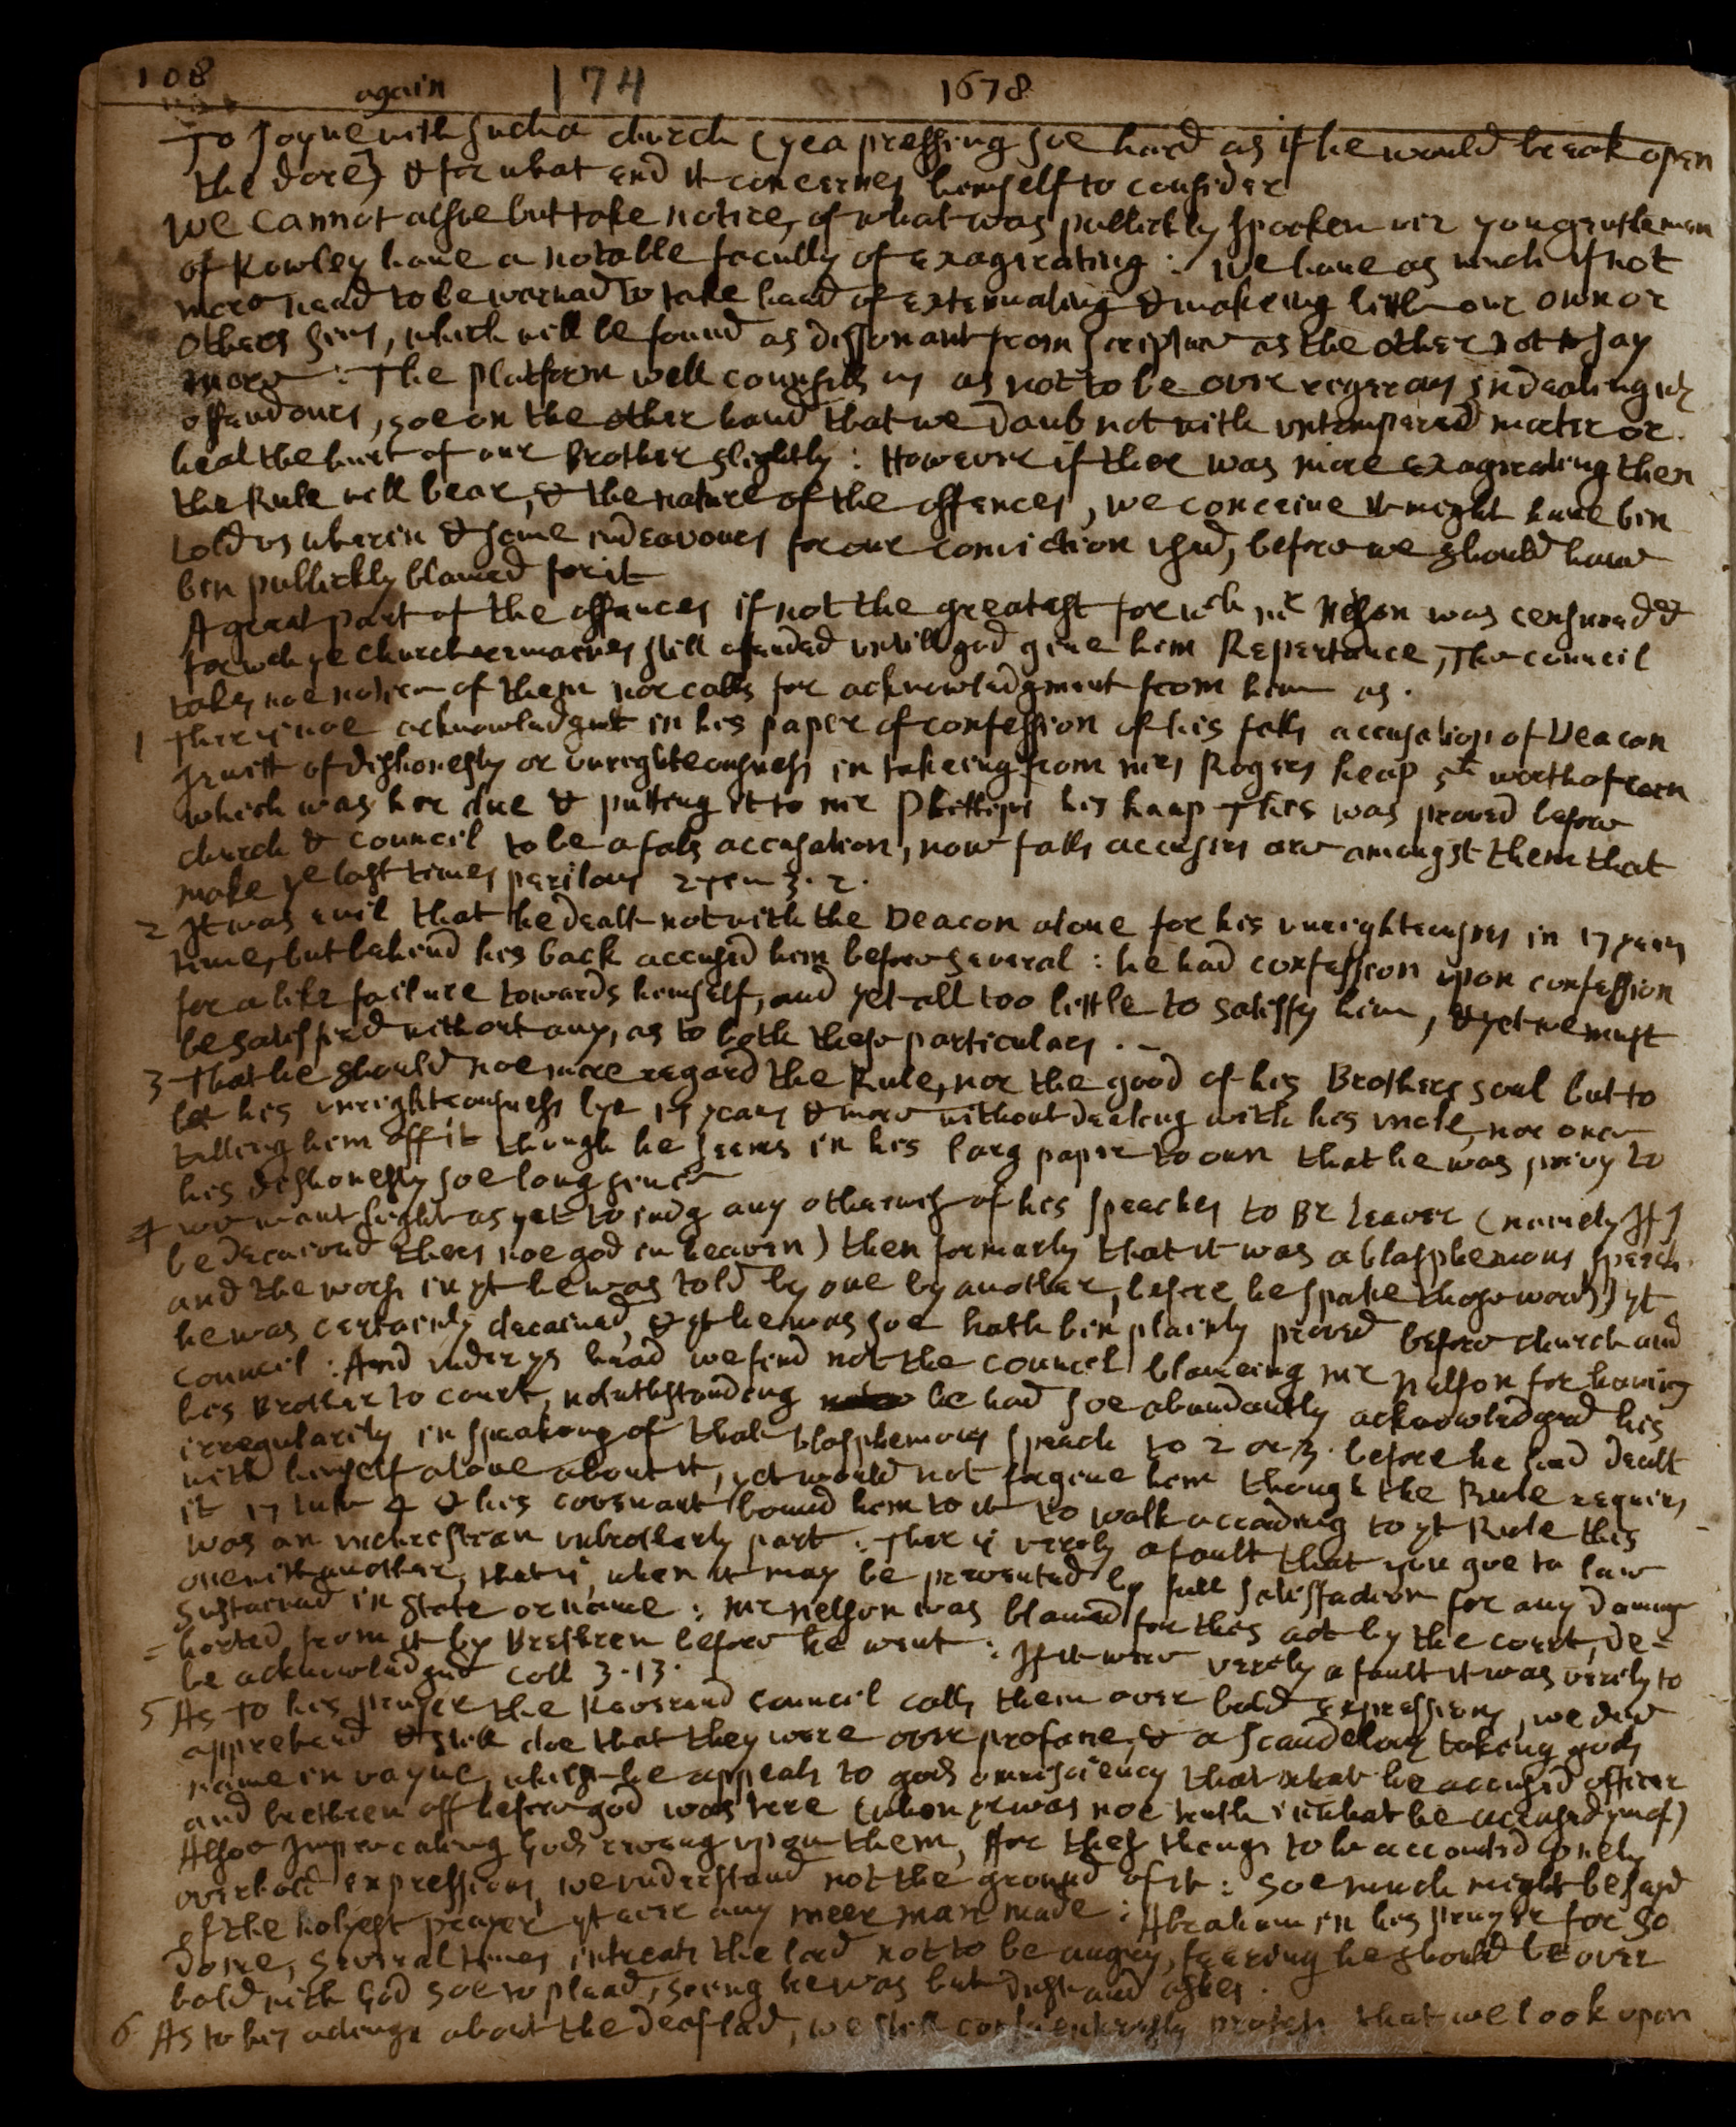 108 again 174 1678
To Joyne with such a church (yea pressing soe hard as if he would break open
the dore) & for what end it concernes himself to consider
We cannot alsoe but take notice, of what was pullickly spoken viz you gentlemen
of Rowley have a notable faculty of exagerating : we have as much if not
more need to be warned to take heed of extenuating & makeing little our own or
others sins, which will be found as dissonant from scripture as the other not to say
more : The platform well counsells us as not to be over regerous in dealing wth
offendours, soe on the other hand that we Daub not with untempered morter or
heal the hurt of our Brother slightly : However if ther was more exagerating then
the Rule will bear, & the nature of the offences, we conceive it might have bin
told us wherin & some indeavours for our conviction used, before we should have
bin pullickly blamed for it
A great part of the offences if not the greatest for wch mr Nelson was censured &
for wch ye church remaines still ofended untill god give him Repentance, The council
takes noe notice of them nor calls for acknowledgment from him as.
1 Ther is noe acknowledgmt in his paper of confession of his fals accusation of Deacon
Jewitt of dishonesty or unrighteousness in takeing from mrs Rogers heap 5s worth of corn
which was her due & putting it to mr Phillips his heap This was proved before
church & council to be a fals accusation, now fals accusers are amongst them that
make ye last times perilous 2 Tim 3. 2.
2 It was evil that he dealt not with the Deacon alone for his unrighteousnes in 17 years
time, but behind his back accused him before several : he had confession upon confession
for a like failure towards himself, and yet all too little to satisfy him, & yet we must
be satisfied without any, as to both these particulars .
3 That he should noe more regard the Rule, nor the good of his Brothers soul but to
let his unrighteousness lye 17 years & more without dealing with his uncle, nor once
telling him off it though he seems in his larg paper to own that he was privy to
his dishonesty soe long since
4 we want light as yet to judg any otherwise of his speaches to Br Leaver (namely If I
be deceived thers noe god in heaven) then formerly that it was a blasphemous speech.
and the wors in yt he was told by one by another, before he spake those words) yt
he was certainly deceived, & yt he was soe hath bin plainly proved before church and
council : And under ys head we find not the council blameing mr Nelson for having
his Brother to court, notwithstanding he had soe abundantly acknowledged his
irregularity in speaking of that blasphemous speach to 2 or 3 before he had dealt
with himself alone about it, yet would not forgive him though the Rule requires
it 17 Luke 4 & his covenant bound him to it to walk according to yt Rule this
was an unchristian unbrotherly part : Ther is verely a fault that you goe to law
one with another, that is, when it may be prevented by full satisfaction for any damage
sustained in state or name : mr Nelson was blamed for this act by the court, de-
-horted from it by Brethren before he went : If it were verely a fault it was verely to
be acknowledged Coll 3.13.
5 As to his prayer the Reverend council calls them over bold expressions, we did
apprehend & still doe that they were over profane, & a scandelous takeing gods
name in vayne, when he appeals to gods omnisciency that what he accused officer
and brethren off before god was true (when yr was noe truth in what he accused ym of)
Alsoe Imprecating gods wrong upon them, for thes things to be accounted onely
overbold expressions, we understand not the ground of it : soe much might be sayd
of the holyest prayer yt ever any meer man made : Abraham in his prayer for So
dome, several times intreats the lord not to be angry, fearing he should be over
bold with God soe to plead, seeing he was but dust and ashes .
6 As to his actings about the deaf lad, we still conscientiously profess that we look upon